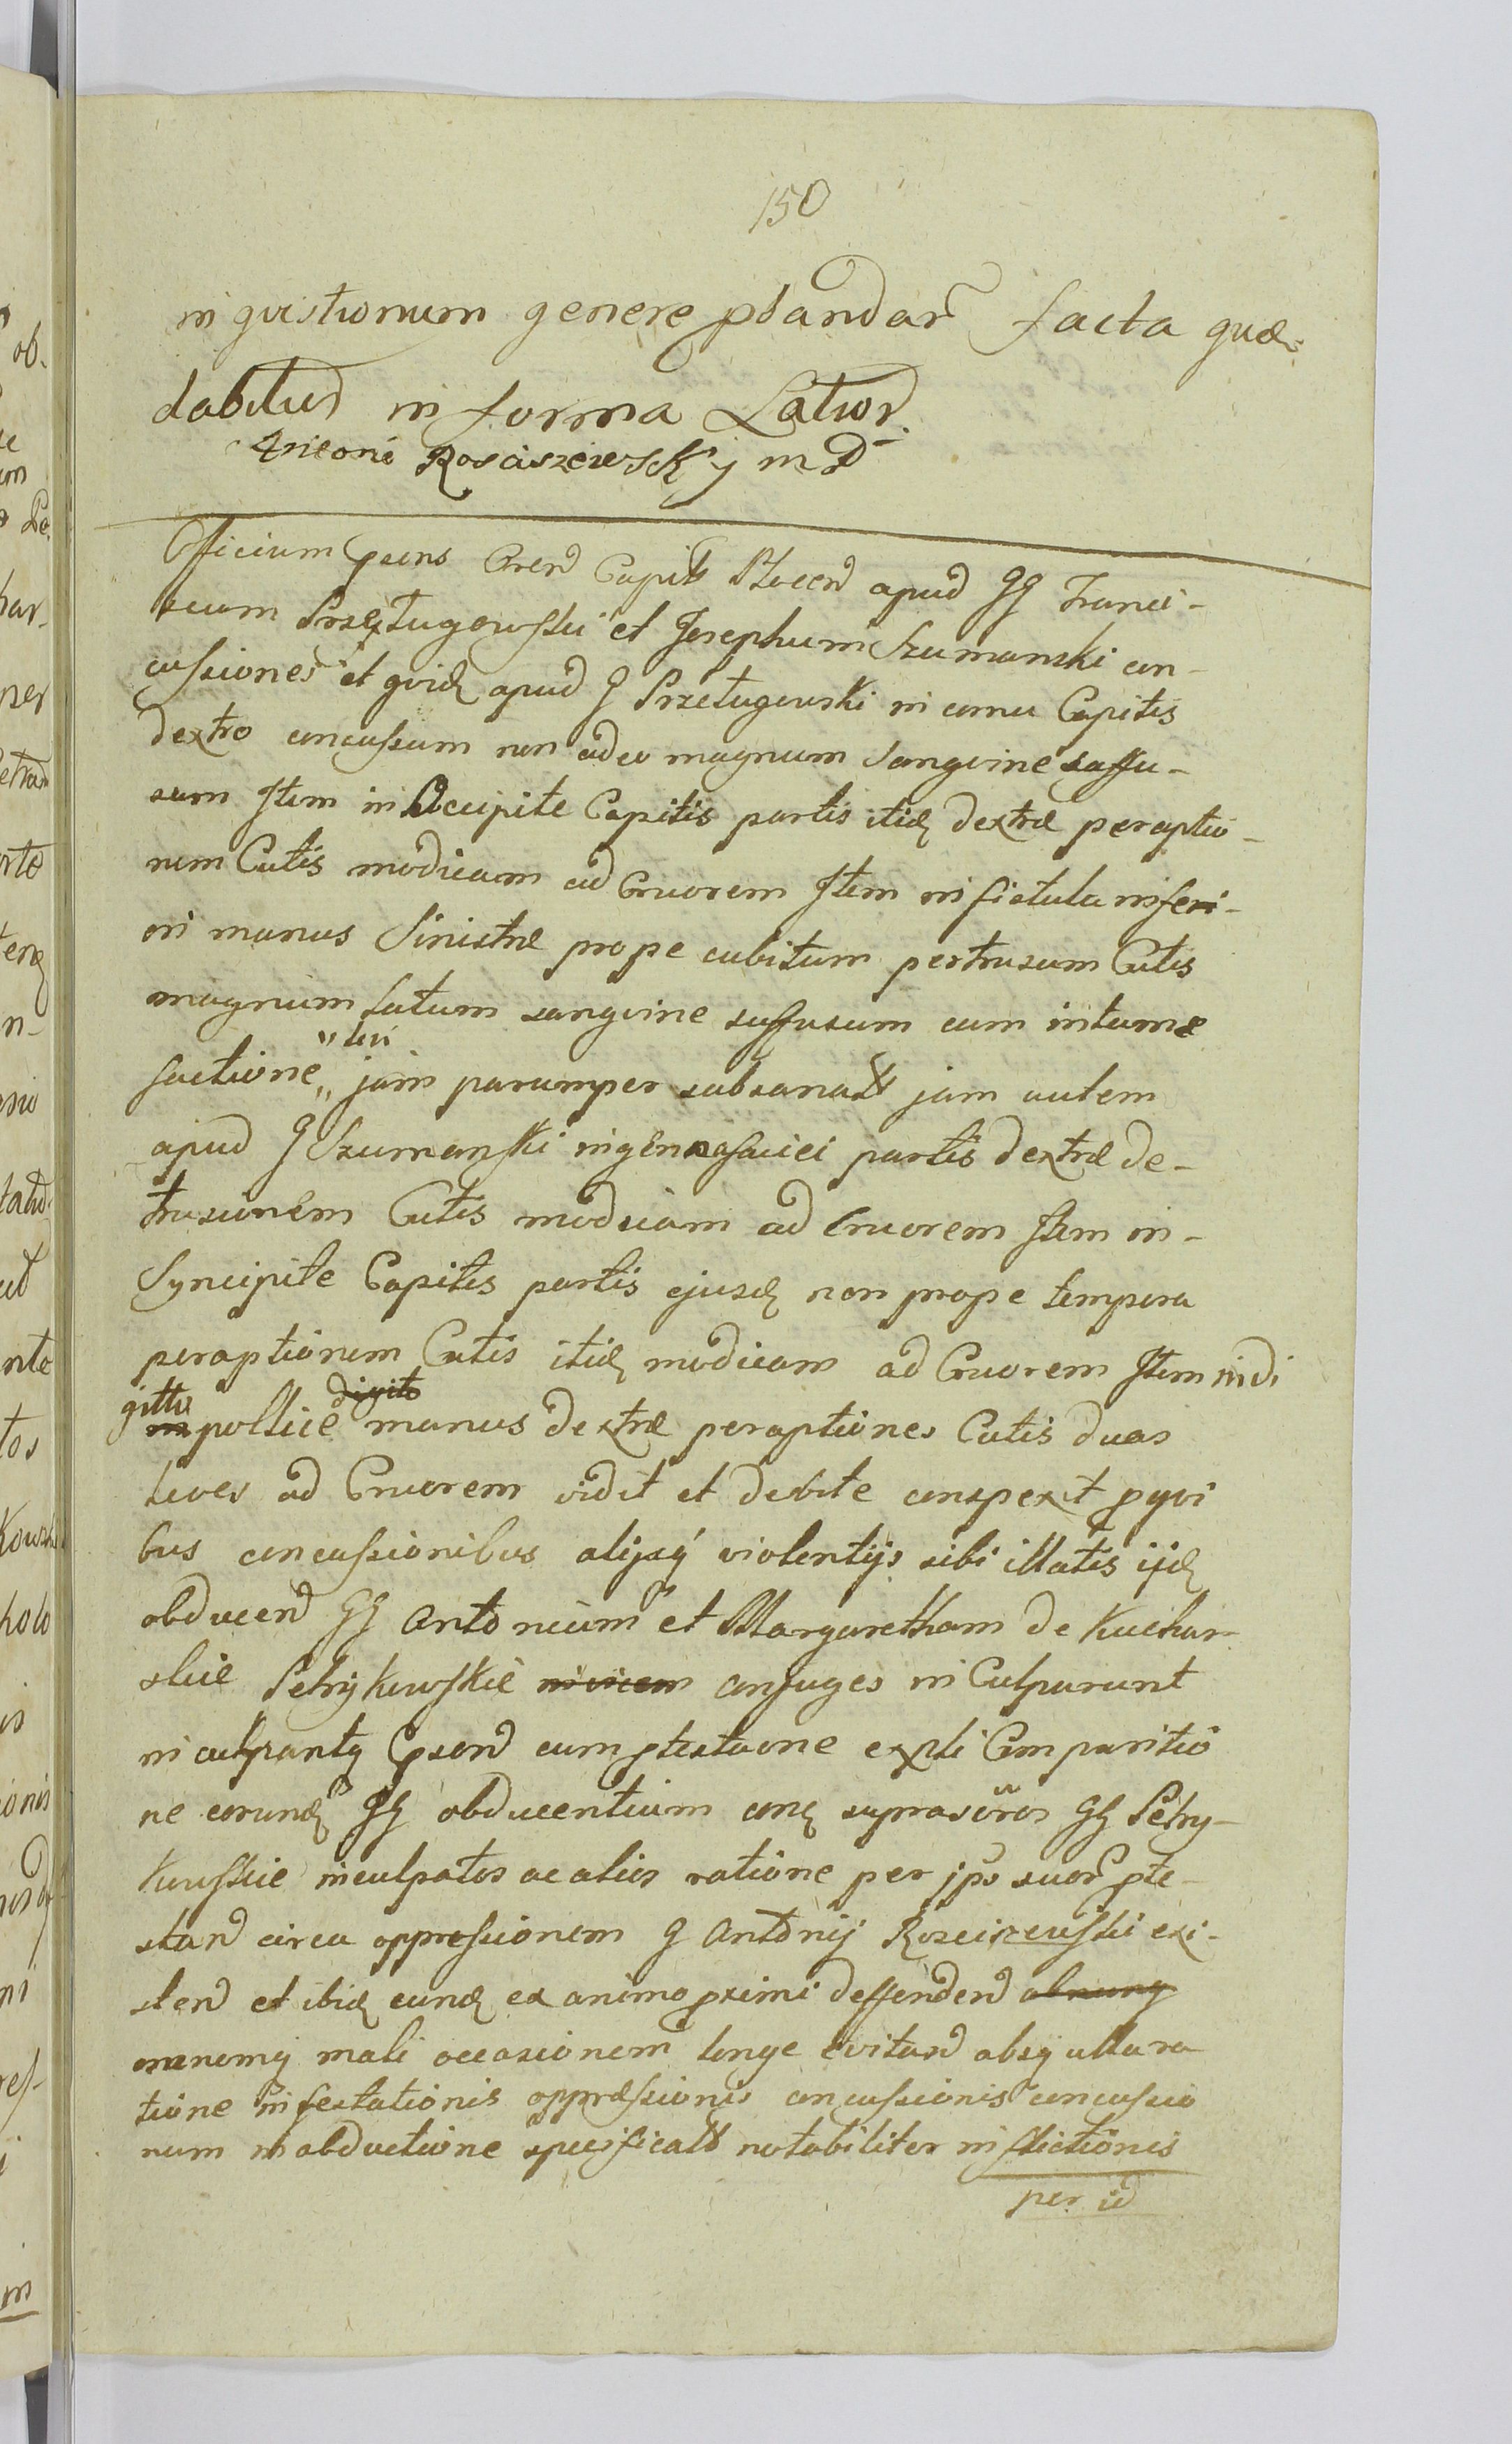 150
inqvisitionum genere ptandar facta quæ
dabitur in forma Latior.
Antoni Rosciszewsky mp
Officium psens Cren Capit Plocen apud GG Franci-
scum Przetugowski et Josephum Szumanski con-
cussiones et qvid apud G Przetugowski in cornu Capitis
dextro concussum non adeo magnum Sangvine suffu-
sum Item in Occipite Capitis partis itid dextræ peraptio-
nem Cutis modicam ad Cruorem Item in fistula inferi-
ori manus Sinistræ prope cubitum pertrusum Cutis
magnum Latum sangvine suffusum cum intume
factione levi jam parumper subsanatt jam autem
apud G Szumanski in gena faciei partis dextræ de-
trusionem Cutis modicam ad Cruorem Item in-
Syncipite Capitis partis ejusd non prope tempora
peraptionem Cutis itid modicam ad Cruorem Item in di
gitto digito
in pollice manus dextræ peraptiones Cutis duas
leves ad Cruorem vidit et debite conspexit p qvi
bus concussionibus alijsq violentijs sibi illatis ijd
obducen GG Antonium et Margaretham de Kuchar
skie Petrykowskie invicem conjuges in Culparunt
in culpantq psen cum ptestaone expli Comparitio
ne eorund GG obducentium cong suprascros GG Petry-
kowskie inculpatos ac alios ratione per ips suor pte-
stan circa oppressionem G Antonij Rosciszewski exi-
sten et ibid eund ex animo proximi deffenden
omnemq mali occasionem longe evitand absq ulla ra
tione infestationis oppræssionis concussionis concussio
num in obductione specificatt notabiliter inflictionis
per id